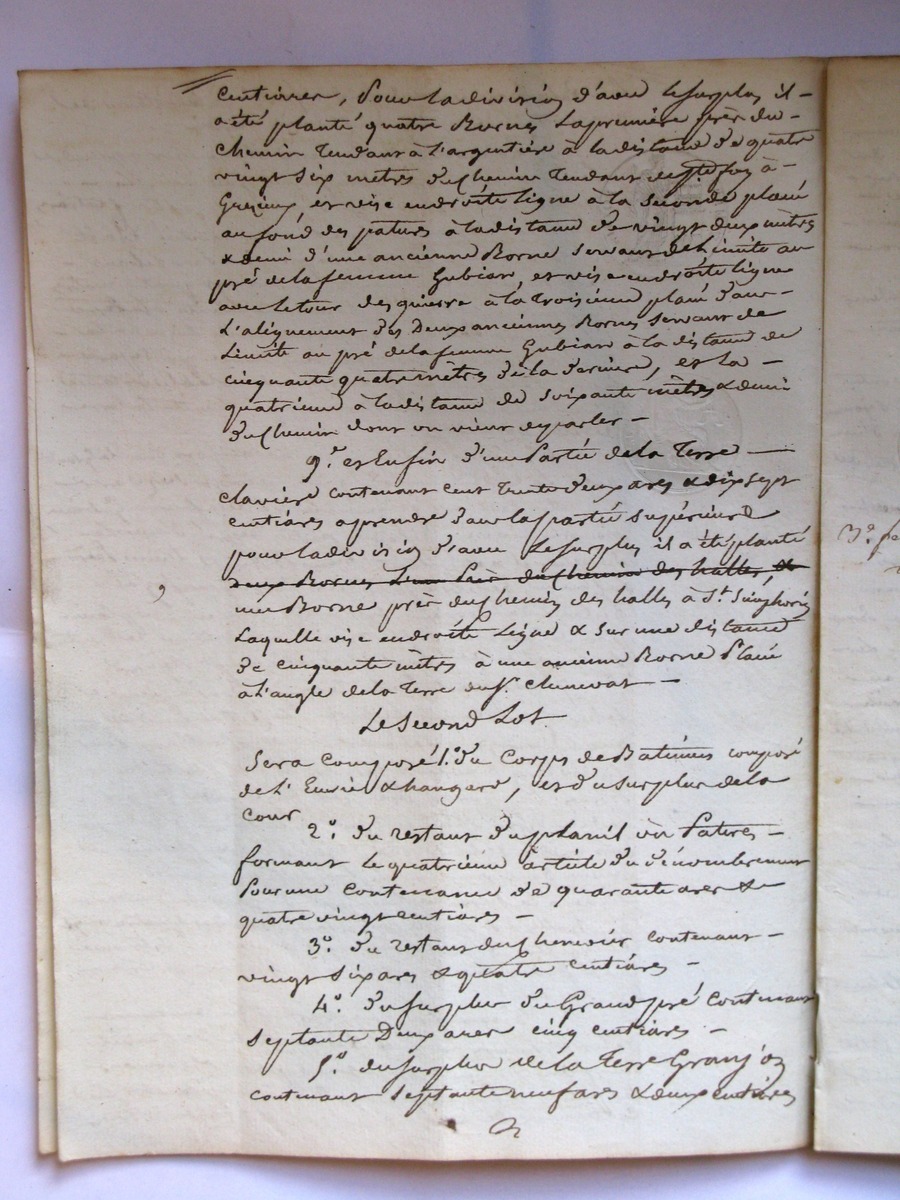 Centiares, Pour la division d'avec le surplus il
a été planté quatre Bornes La premiere près du
Chemin Tendant à L'argentière à la distance de quatre
vingt Six mètres du Chemin Tendant de Ste foy à
Grezieux et vise en droite ligne à la seconde placée
au fond des patures à la distance de vingt deux mètres
& demi d'une ancienne Borne Servant de Limite au
pré de la femme Gubian, et vise en droite ligne
avec le tour desquierre à la troisième placée dans
L'alignement des Deux anciennes Bornes Servant de
Limite au pré de la femme Gubian à la distance de
cinquante quatre mètres de la derniere, et la
quatrieme à la distance de soixante mètres & demi
du Chemin dont on vient de parler
9.° et Enfin d'une Partie de la Terre
Claviere contenant Cent Trente deux ares & dix sept
Centiares a prendre dans la partie supérieure
pour la division d'avec Le surplus il a été planté
deux Bornes L'une Près du Chemin des halles, &
une Borne près du Chemin des halles à St. Simphorien
Laquelle vise en droite Ligne & sur une distance
de cinquante mètres à une ancienne Borne Placée
à L'angle de la Terre du Sr.
Le Second Lot
Sera Composé 1.° du Corps de Batimens composé
de L'Ecurie & hangard, et du surplus de la
Cour
2.° du restant du plané vers Patures
formant le quatrième article du dénombrement
Pour une Contenance de quarante ares &
quatre vingt centiares
3.° du restant du Chenevier contenant
vingt six ares & quatre centiares
4.° du surplus du Grand pré contenant
septante Deux ares cinq centiares
5.° du surplus de la Terre Granjon
contenant septante neuf ares & deux centiares
3.°